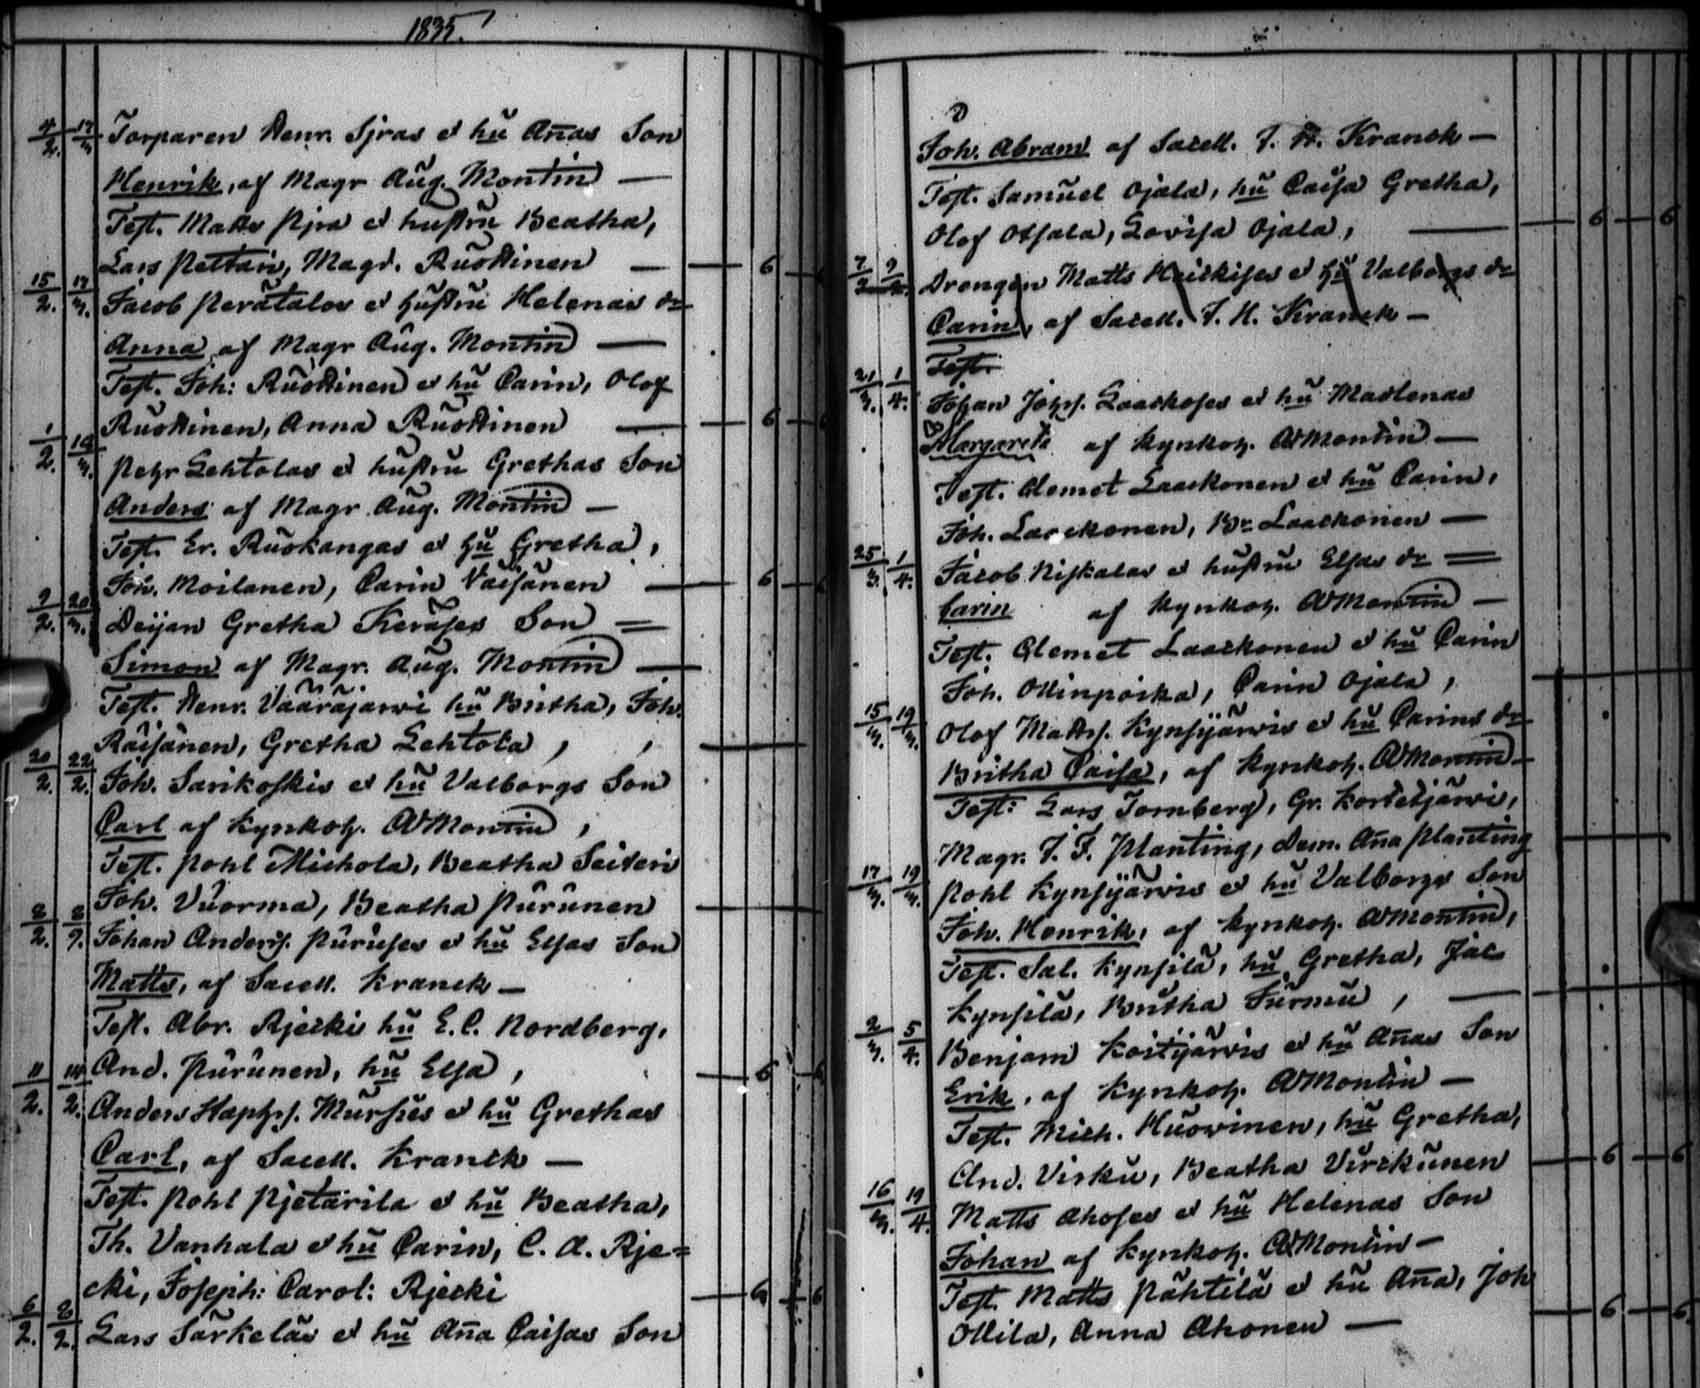 1835.
4/2. 17/3. Torparen Henr. Sjras et hu Annas Son
Henrik, af Magr Aug. Montin —
Test. Matts et hustru Beatha,
Lars Magd. Ruottinen — 6
15/2. 17/3. Jacob Perätalos et hustru Helenas dr
Anna af Magr Aug. Montin —
Test. Joh: Ruottinen et hu Carin, Olof
Ruottinen, Anna Ruottinen — 6
1/2. Pehr Lehtolas et hustru Grethas Son
Anders af Magr Aug. Montin —
Test. Er. Ruokangas et hu Gretha,
Joh. Moilanen, Carin Väisänen — 6
9/2. 20/3. Deijan Gretha Keräses Son =
Simon af Magr. Aug. Montin —
Test. Henr. Vaarajärvi hu Britha, Joh.
Räisänen, Gretha Lehtola,
20/2. 22/2. Joh. Sarikoskis et hu Valborgs Son
Carl af Kynkoh. AMontin,
Test. Pohl Michola, Beatha Seiteri
Joh. Vuorma, Beatha Purunen
8/2. Johan Anders. Puruses et hu Elsas Son
Matts, af Sacell. Kranck —
Test. Abr. Rjecki hu E. C. Nordberg,
And. Purunen, hu Elsa, 6
11/2. 14/2. Anders Staphs. Mursus et hu Grethas
Carl, af Sacell. Kranck —
Test. Pohl Pjetarila et hu Beatha,
Th. Vanhala et hu Carin, C. A. Rje=
cki, Joseph: Carol: Rjecki 6
6/2. 8/2. Lars Särkeläs et hu Anna Caisas Son
Joh. Abram af Sacell. J. H. Kranck —
Test. Samuel Ojala, hu Caisa Gretha,
Olof Ojala, Lovisa Ojala, — 6 — 6
7/2 Drengen Matts Heickises et hu Valborgs dr
Carin, af Sacell. J. H. Kranck —
Test.
21/3. 1/4. Johan Johs. Laackoses et hu Madlenas
Margareta af Kynkoh. AMontin —
Test. Clemet Laackonen et hu Carin,
Joh. Laackonen, Br. Laackonen —
25/3. 1/4. Jacob Niskalas et hustru Elsas dr =
Carin af Kynkoh. AMontin —
Test. Clemet Laackonen et hu Carin
Joh. Ollinpoika, Carin Ojala,
15/3. 19/3. Olof Matts. Kynsijärvis et hu Carins dr
Britha Caisa, af Kynkoh. AMontin —
Test: Lars Tornberg, Gr. Kortetjärvi,
Magr. J. F. Planting, Dem. Anna Planting
17/3. 19/3. Pohl Kynsijärvis et hu Valborgs Son
Joh. Henrik, af Kynkoh. AMontin,
Test. Sal. Kynsilä, hu Gretha, Jac
Kynsilä, Britha Jurmu, —
2/3. 5/4. Benjam Koitijärvis et hu Annas Son
Erik, af Kynkoh. AMontin —
Test. Mich. Huovinen, hu Gretha,
And. Virku, Beatha Virckunen 6 — 6
16/3. 19/4. Matts Ahoses et hu Helenas Son
Johan af Kynkoh. AMontin —
Test. Matts Pähtilä et hu Anna, Joh
Ollila, Anna Ahonen — 6 — 6